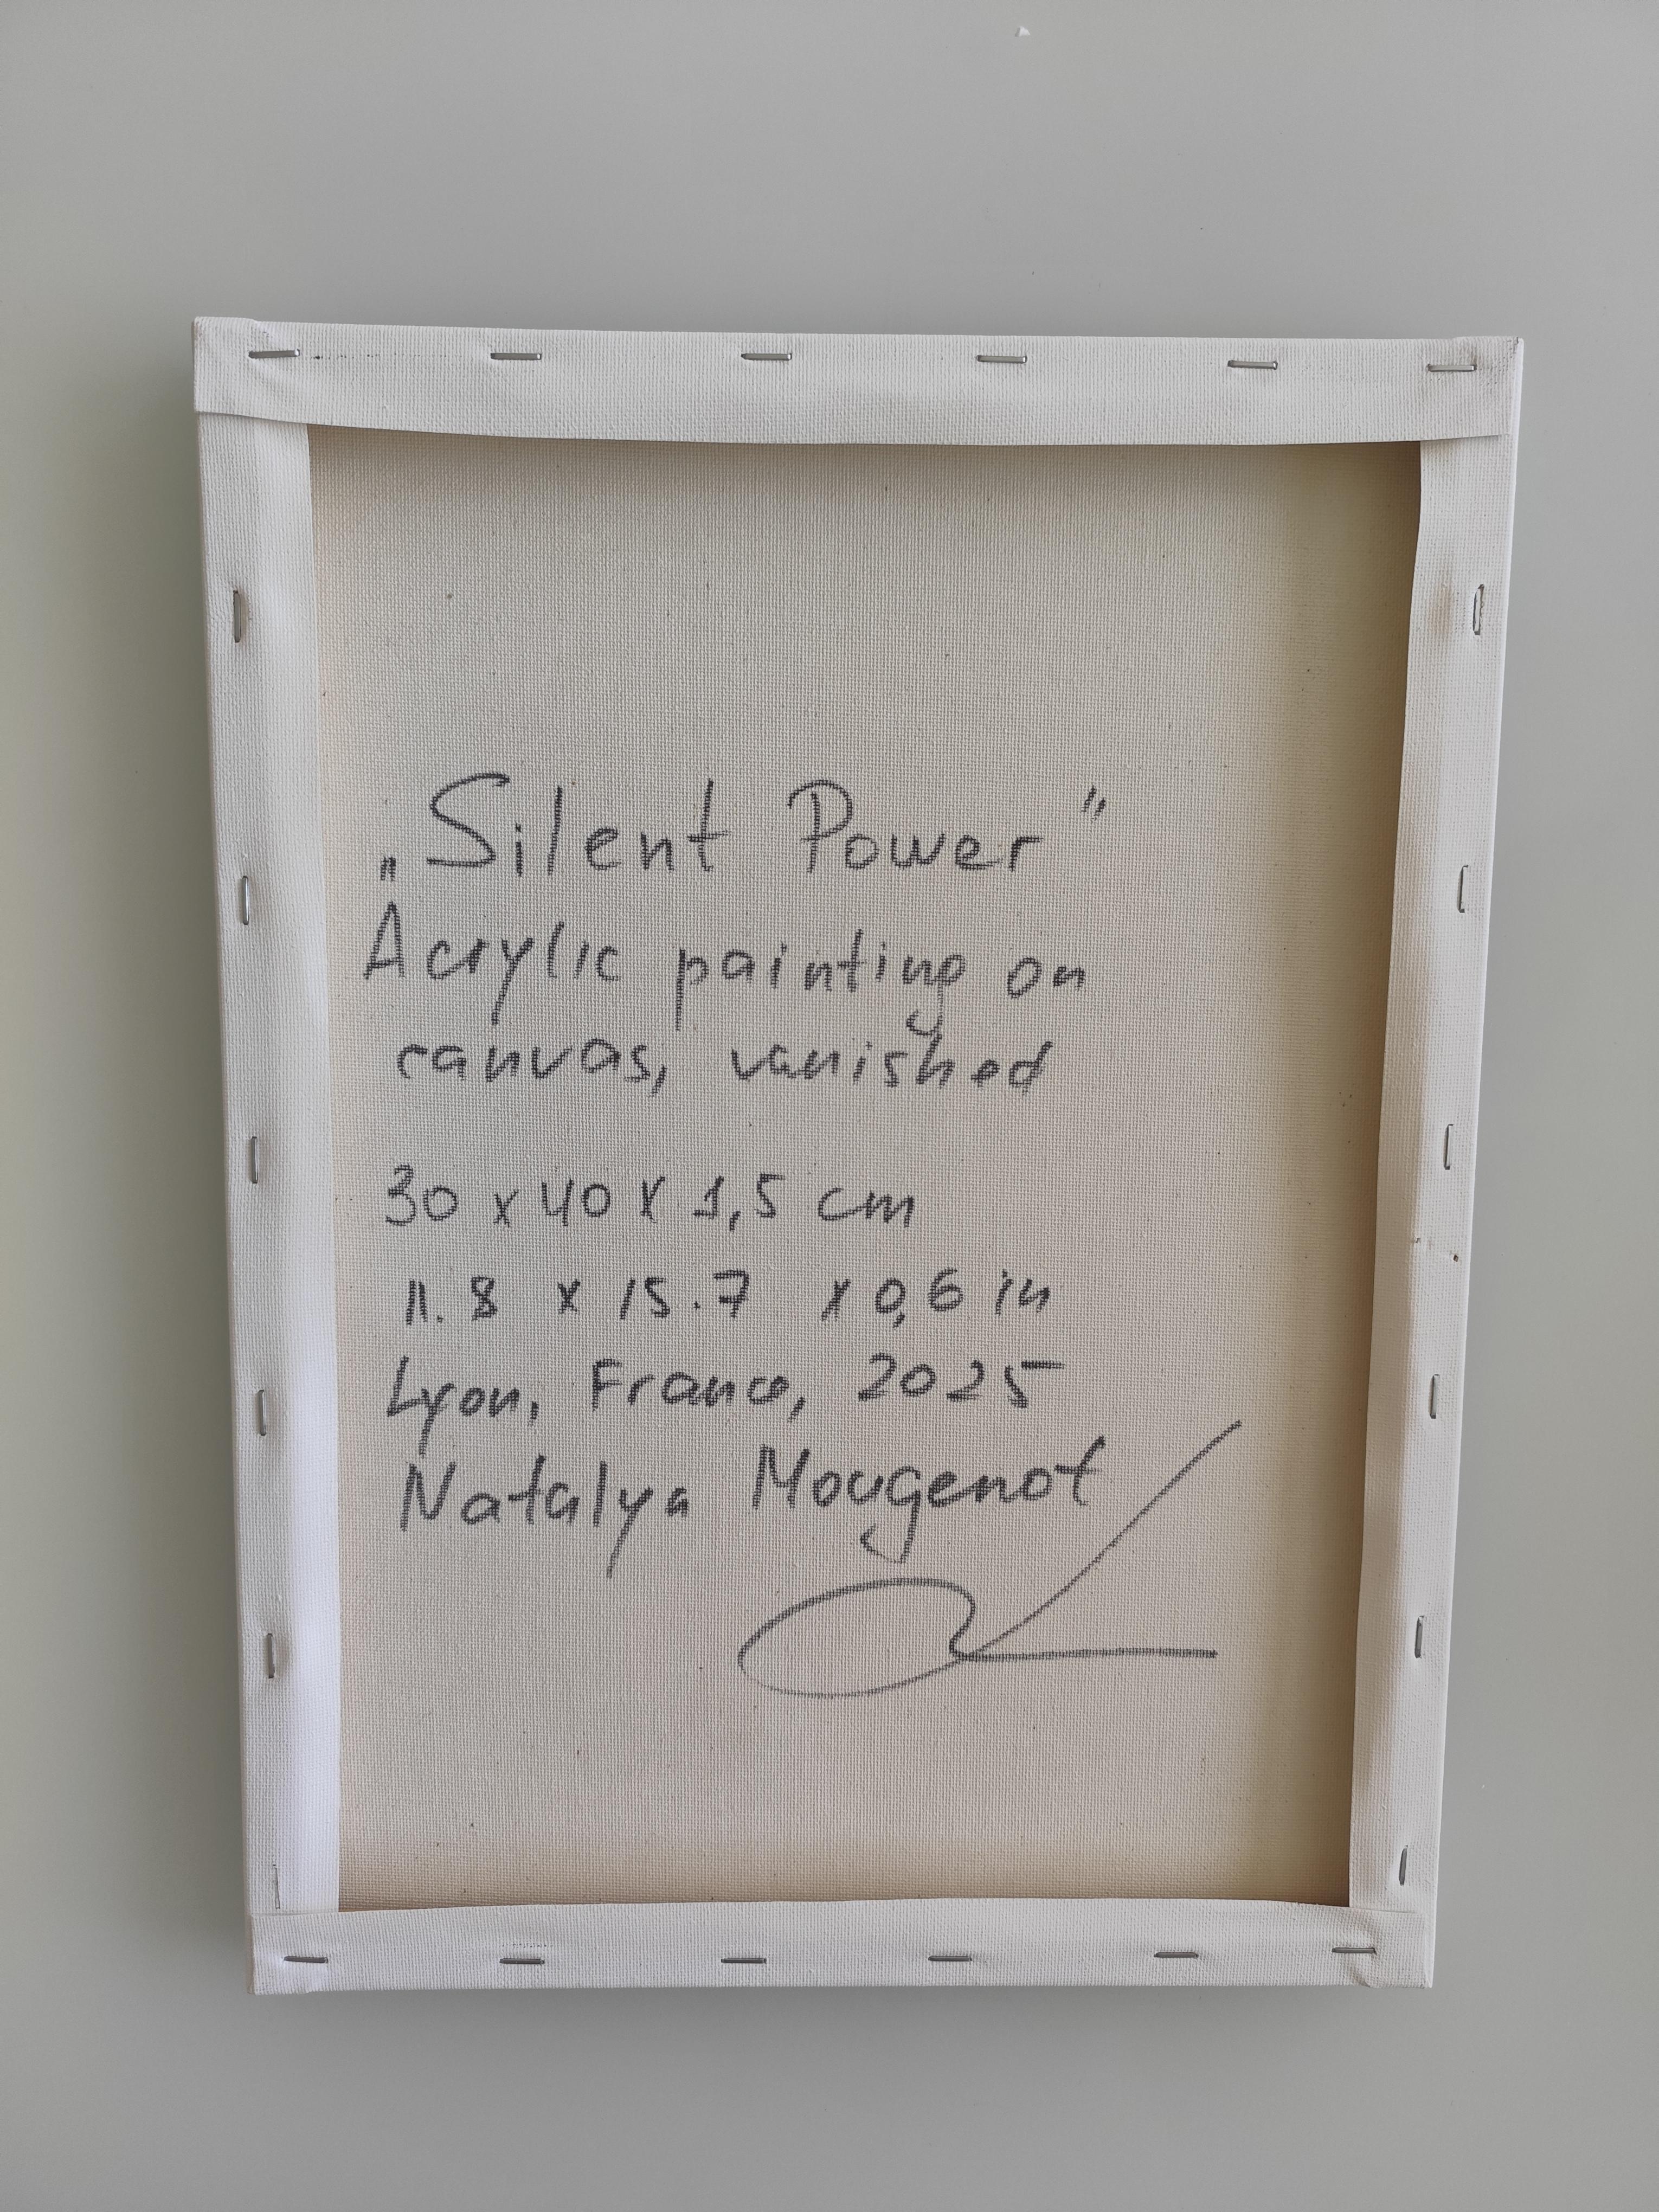 „Silent Power"
Acrylic painting on
canvas, vanished
30 x 40 x 1,5 cm
11.8 x 15.7 x 0,6 in
Lyon, France, 2025
Natalya Mougenot